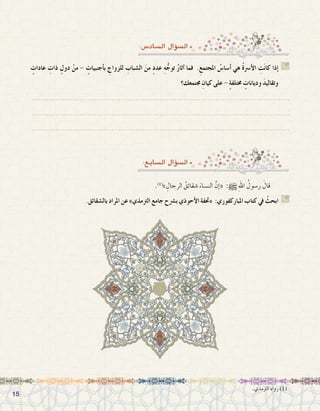 السؤال السادس:
إذا كانت الأسرةُ هي أساسُ المجتمعِ. فما آثارُ توجُّهِ عددٍ منَ الشبابِ للزواجِ بأجنبياتٍ – منْ دولٍ ذاتِ عاداتٍ
وتقاليدَ ودياناتٍ مختلفةٍ – على كيان مجتمعك؟
السؤال السابع:
قالَ رسولُ اللهِ ﷺ: «إنَّ النساءَ شقائقُ الرجالِ»(1).
ابحثْ في كتاب المباركفوري: «تحفة الأحوذي بشرح جامع الترمذي» عن المراد بالشقائق.
(1) رواه الترمذي.
15